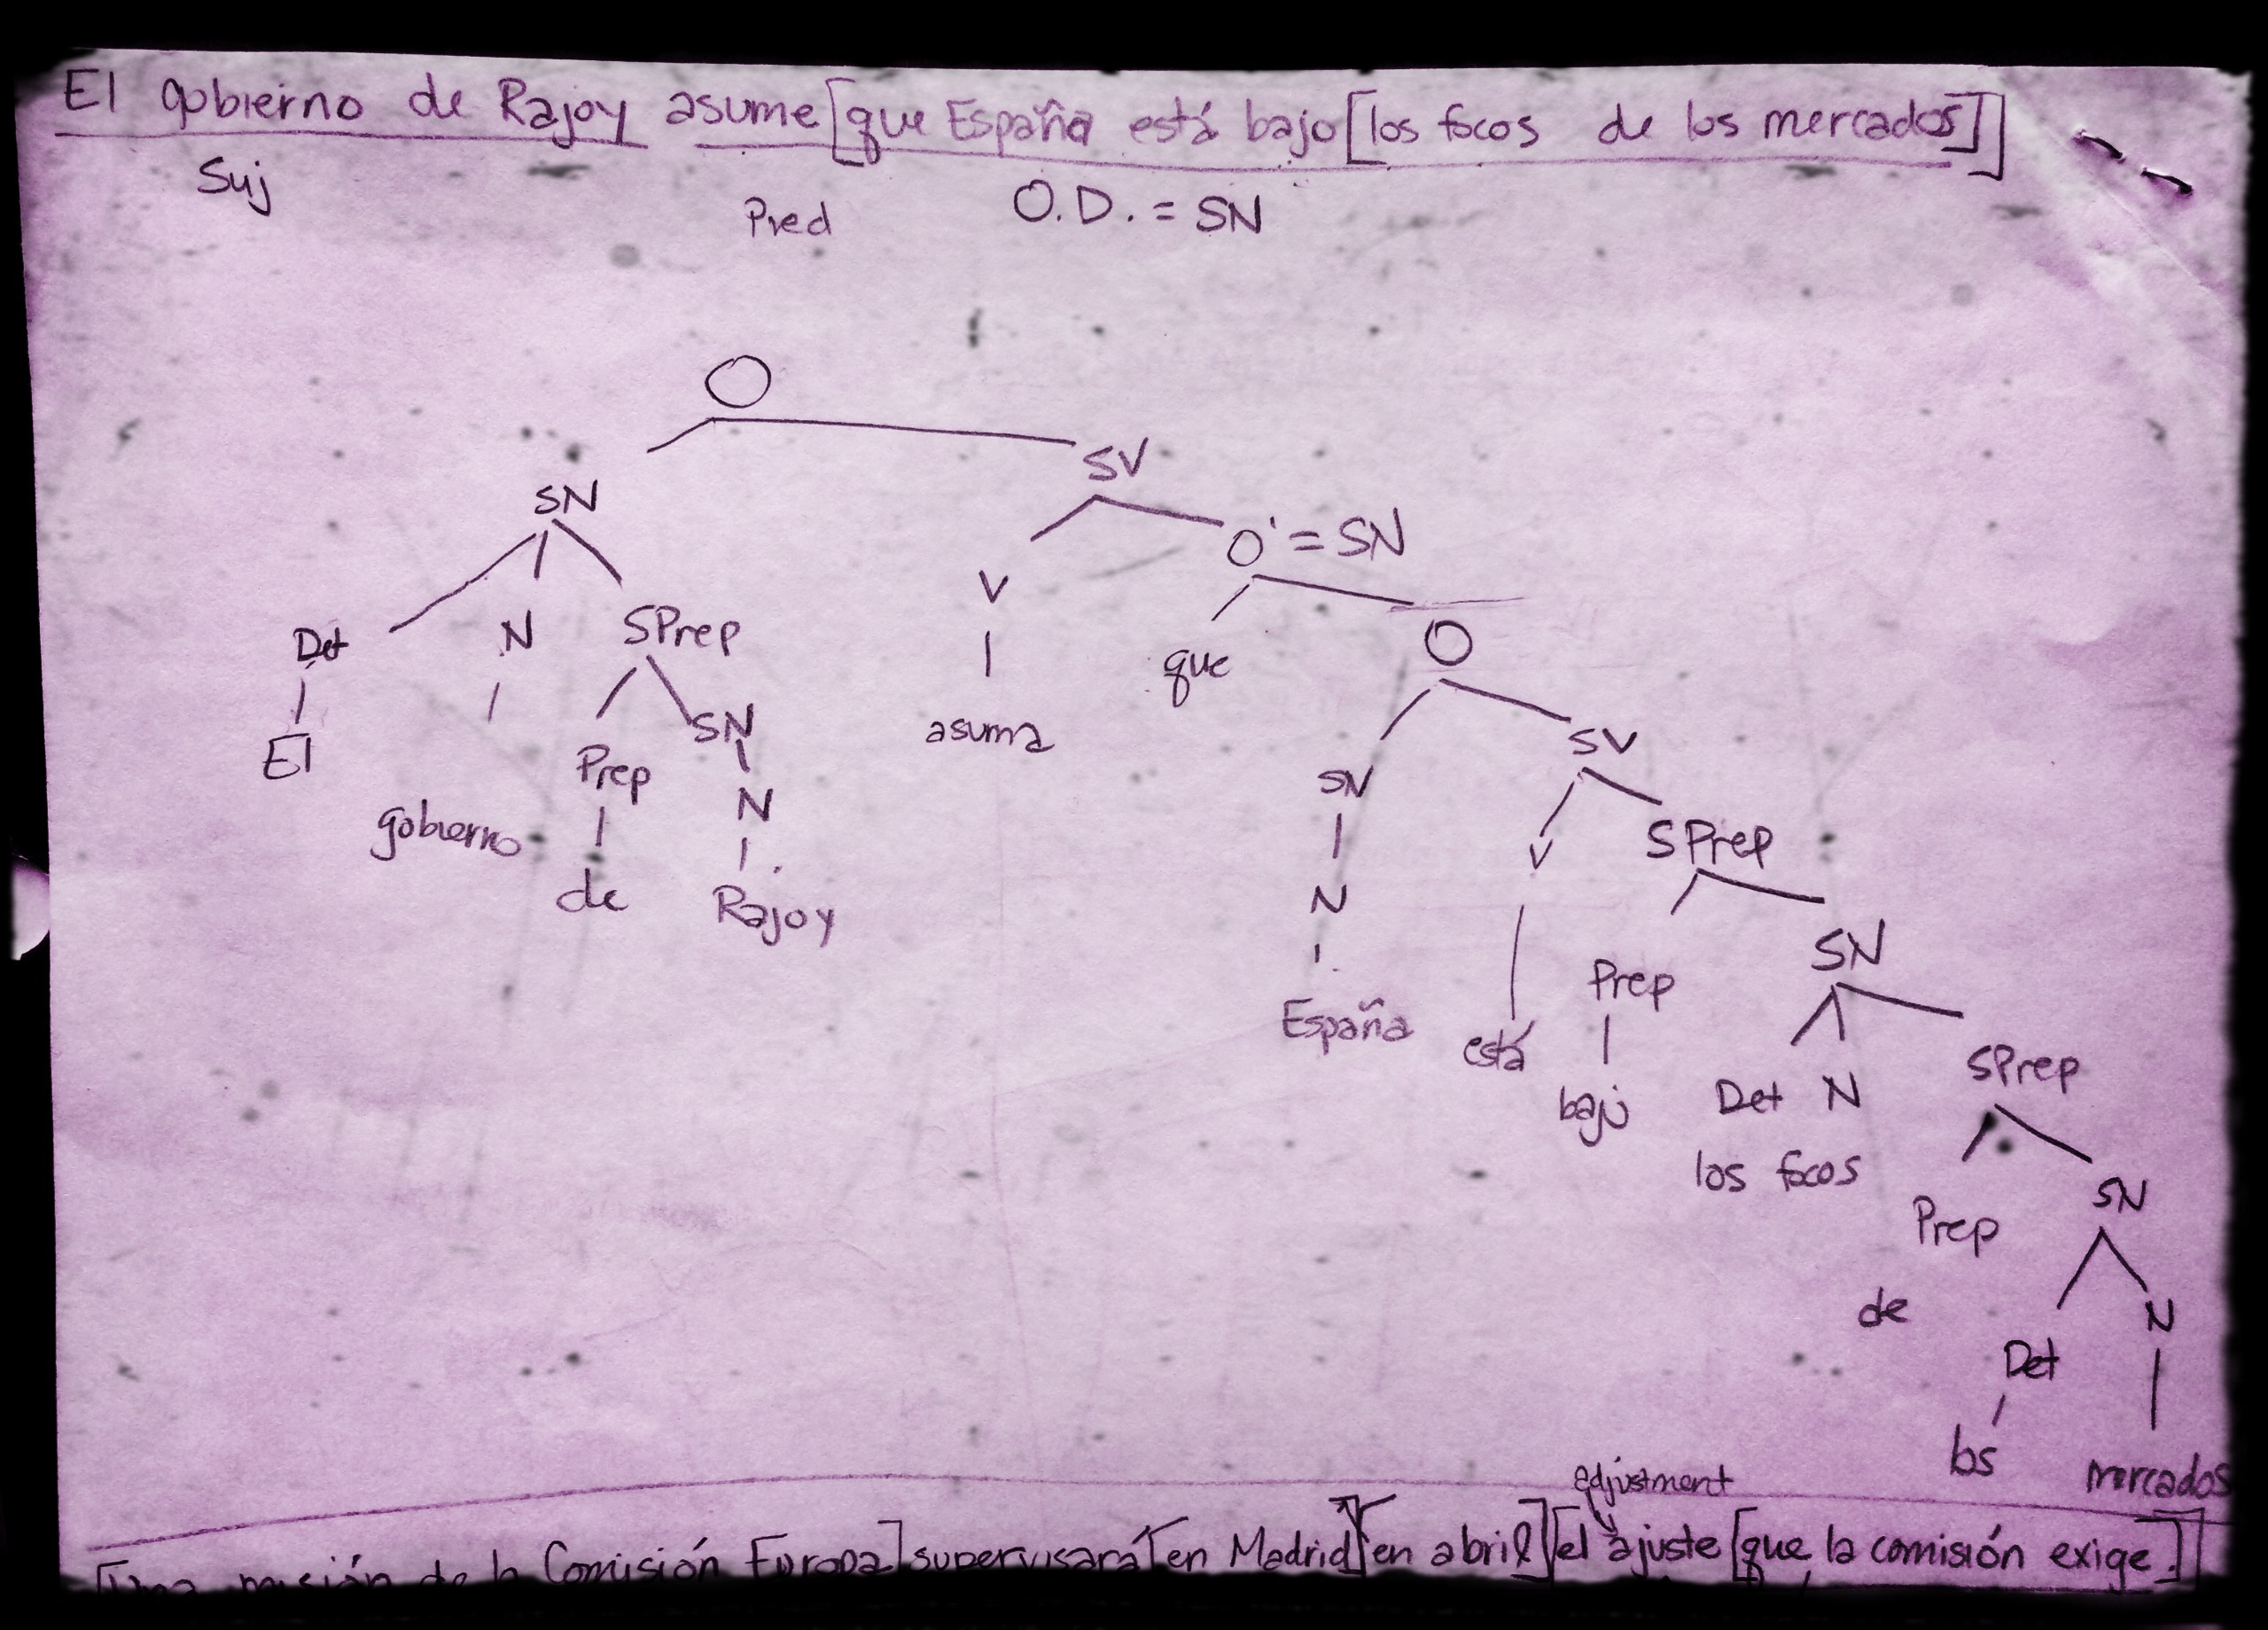 El gobierno de Rajoy asume [que España está bajo [los focos de los mercados]]
Suj
Pred O.D. = SN
O
SV
SN
O' = SN
V
Det N SPrep
O
que
SN
asuma
SV
El
Prep
SN
N
SPrep
gobierno
V
de
Rajoy
N
SN
Prep
España
está
SPrep
Det N
bajo
los focos
SN
Prep
de
N
Det
los
mercados
adjustment
[Una misión de la Comisión Europa] supervisará [en Madrid] [en abril] [el ajuste [que la comisión exige.]]